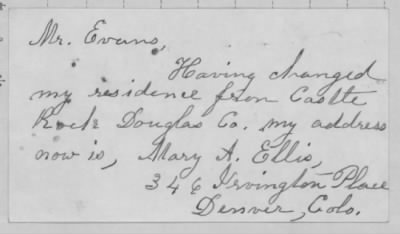 Mr. Evans,
Having changed
my residence from Castle
Rock Douglas Co. my address
now is, Mary A. Ellis,
346 Irvington Place
Denver, Colo.